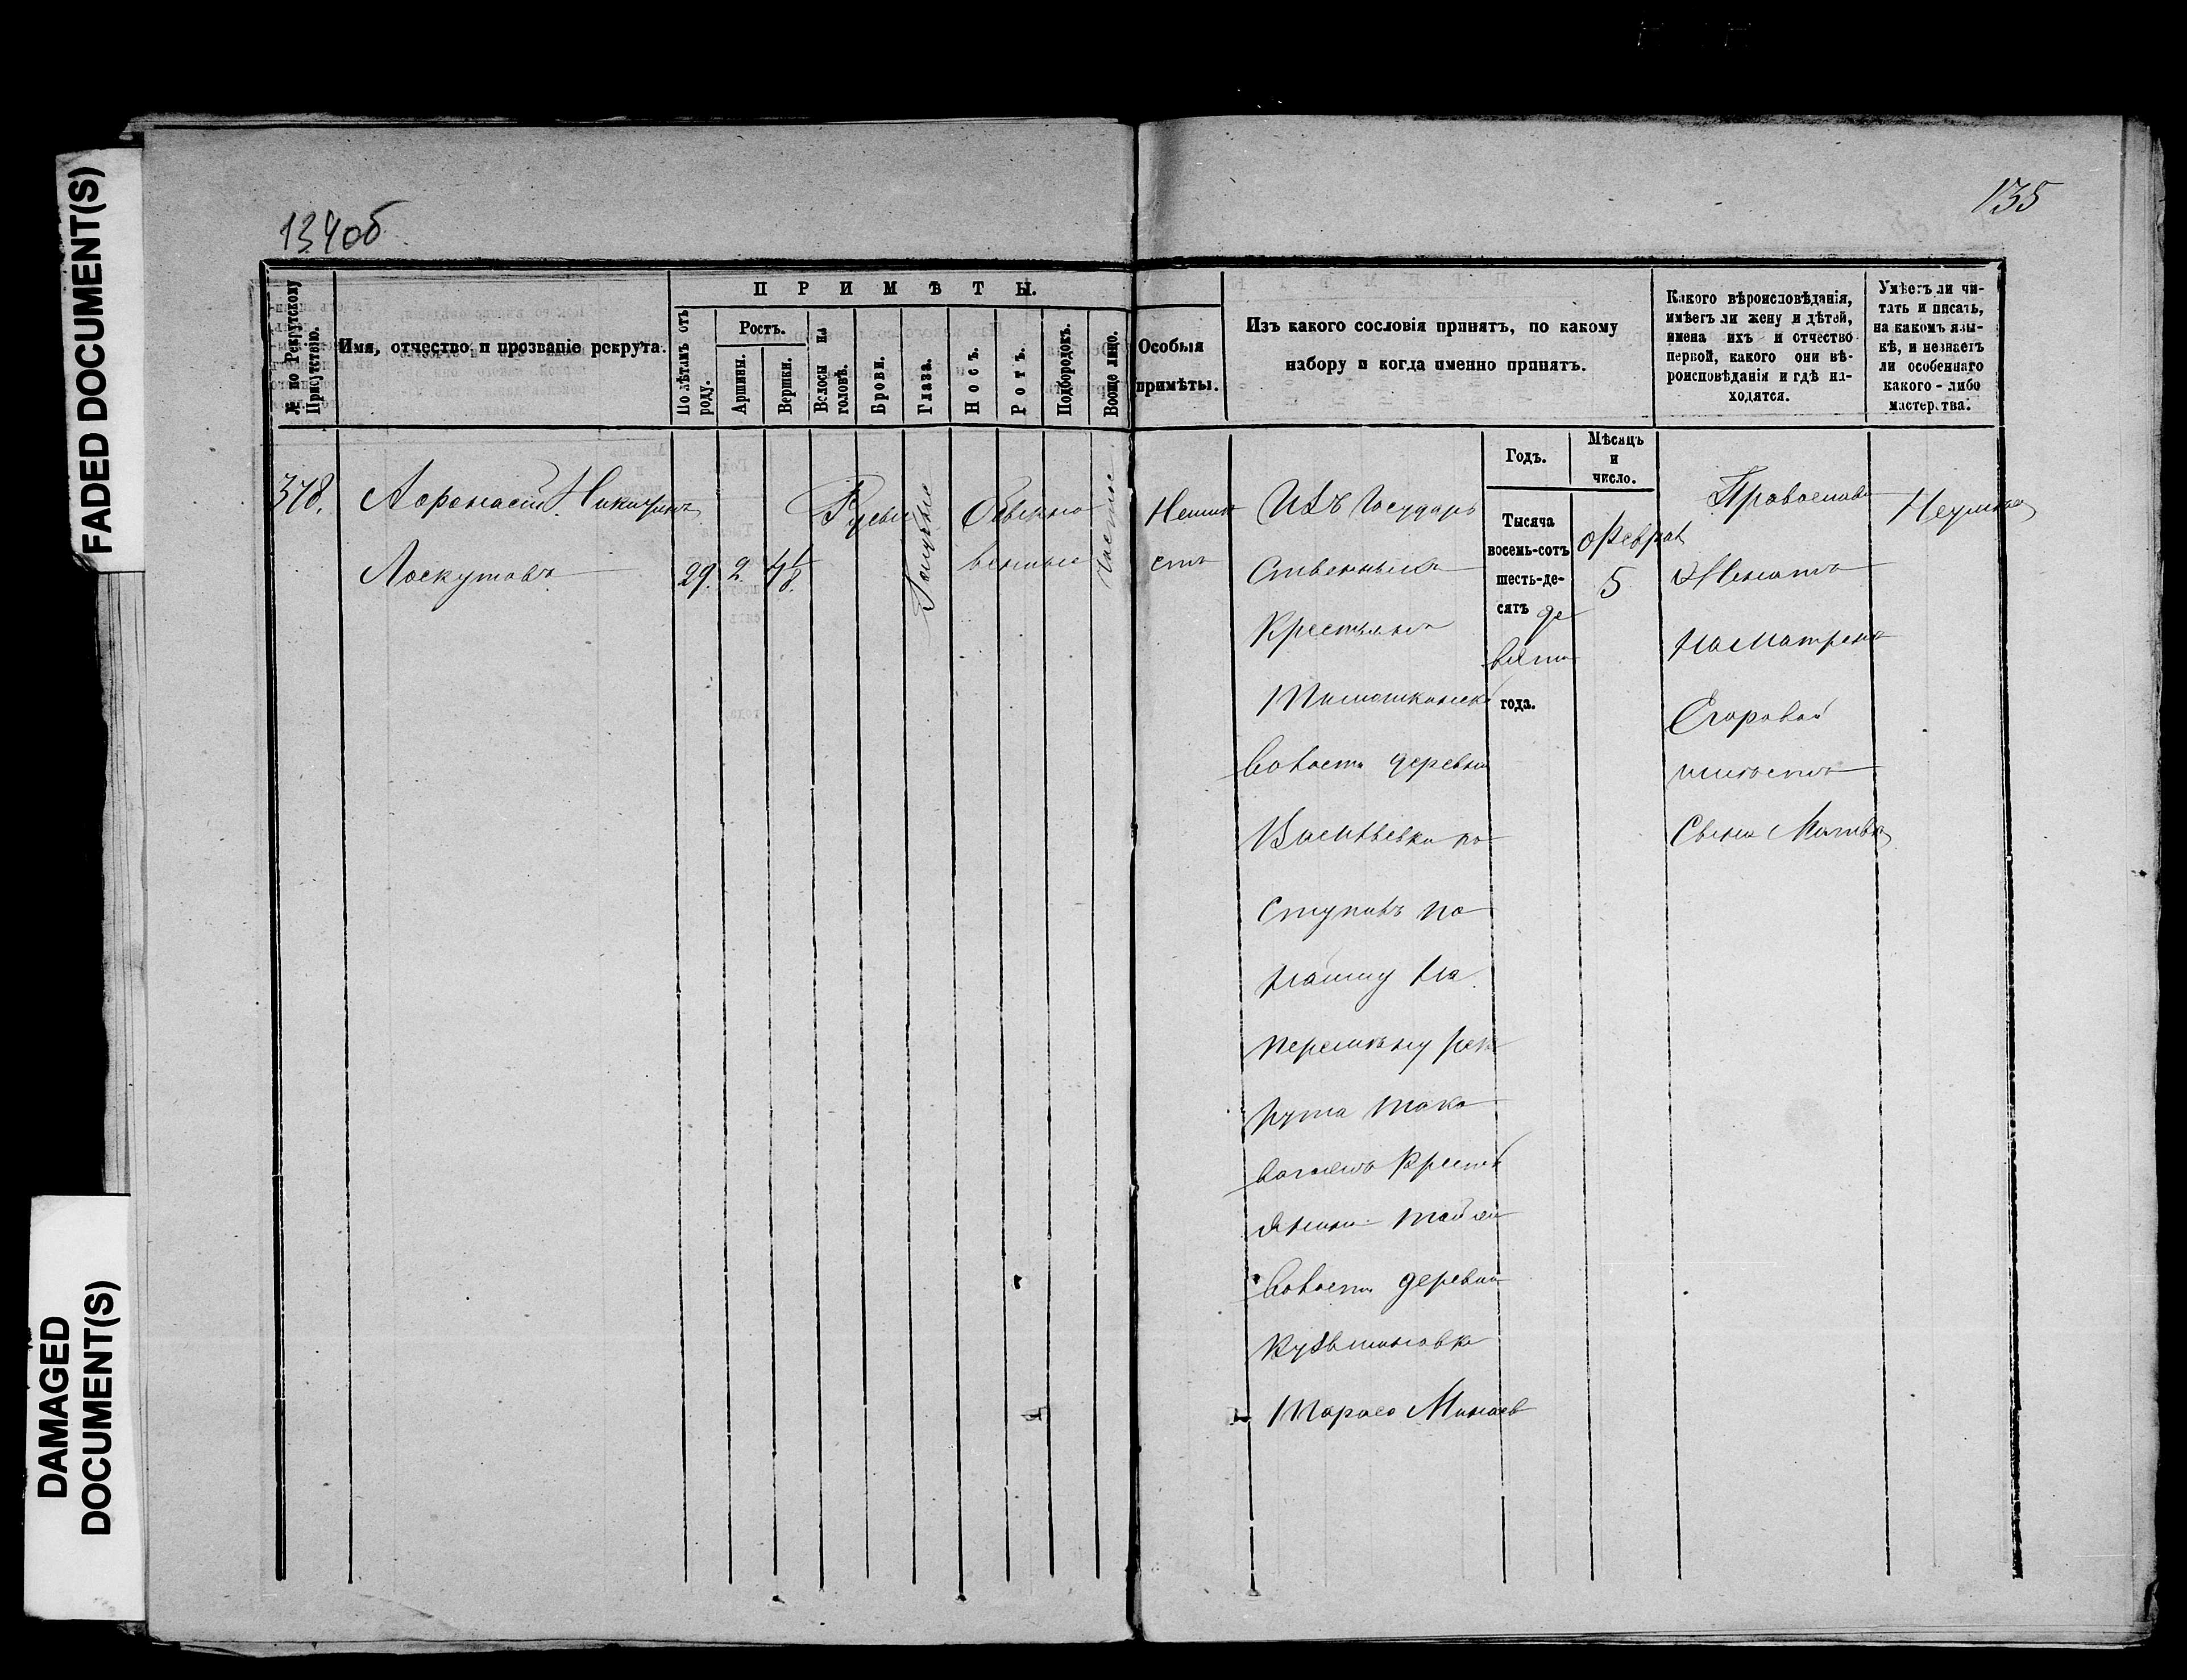 FADED DOCUMENT(S)
DAMAGED
DOCUMENT(S)
134об
135
№ по Рекрутскому
Присутствію.
Имя, отчество и прозваніе рекрута.
ПРИМѢТЫ.
По лѣтамъ отъ
роду.
Ростъ.
Аршины.
Вершки.
Волосы на
головѣ.
Брови.
Глаза.
Носъ.
Ротъ.
Подбородокъ.
Вообще лицо.
Особыя
примѣты.
Изъ какого сословія принятъ, по какому
набору и когда именно принятъ.
Какого вѣроисповѣданія,
имѣетъ ли жену и дѣтей,
имена ихъ и отчество
первой, какого они вѣ-
роисповѣданія и гдѣ на-
ходятся.
Умѣетъ ли чи-
тать и писать,
на какомъ язы-
кѣ, и не знаетъ
ли особеннаго
какого-либо
мастерства.
Годъ.
Мѣсяцъ
и
число.
378.
Афонасій Никитинъ
Лоскутовъ
29
2
4 1/8
Русые
Голубые
Обыкно
венные
Чистое
Неимѣ
етъ
Изъ Государ
ственныхъ
Крестьянъ
Волости деревни
Васильевки по
ступилъ по
найму на
перемѣну рек
рута тако
вагоже кресть
янина той же
Волости деревни
Тараса Минаев
Тысяча
восемь-сотъ
шесть-де-
сятъ де
вята
года.
Феврал
5
Православ
Женатъ
на Матрене
Егоровой
имѣетъ
Сына Матвѣя
Неумѣе